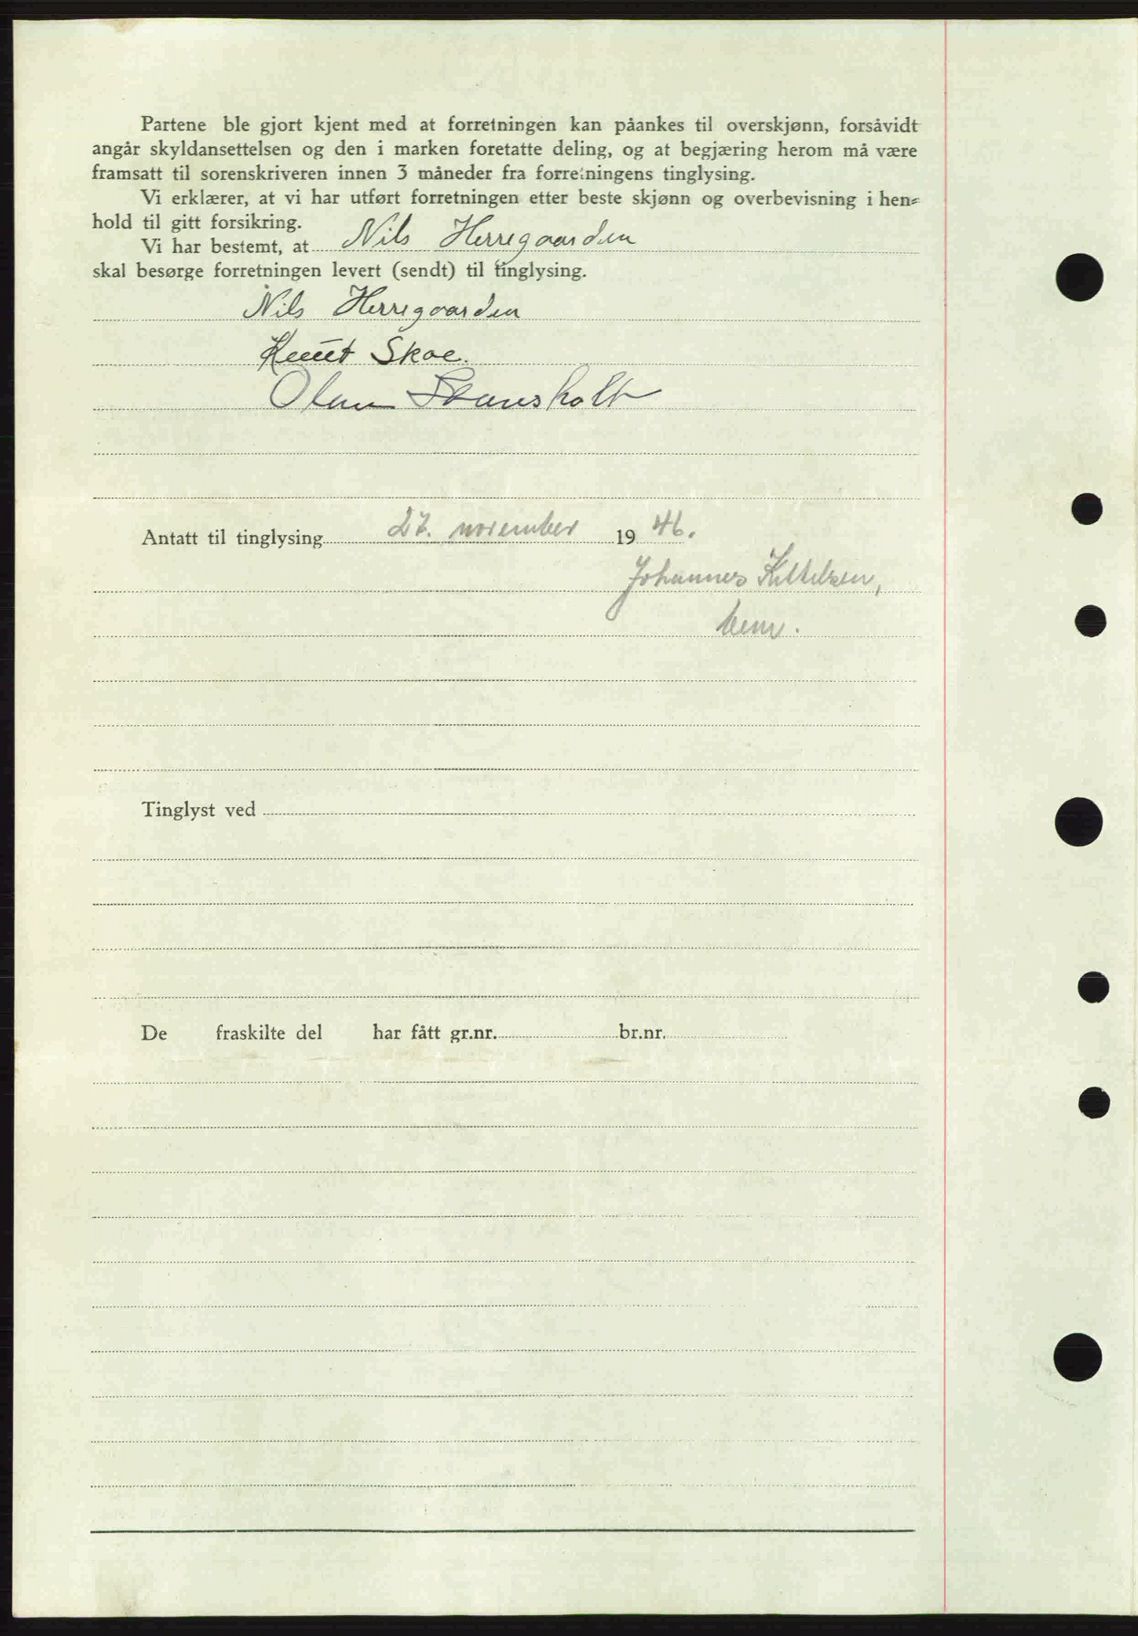 Partene ble gjort kjent med at forretningen kan påankes til overskjønn, forsåvidt
angår skyldansettelsen og den i marken foretatte deling, og at begjæring herom må være
framsatt til sorenskriveren innen 3 måneder fra forretningens tinglysing.
Vi erklærer, at vi har utført forretningen etter beste skjønn og overbevisning i hen-
hold til gitt forsikring.
Vi har bestemt, at Nils Herregaarden
skal besørge forretningen levert (sendt) til tinglysing.
Nils Herregaarden
Knut Skoe.
Olav
Antatt til tinglysing 27. november 19 46.
Johannes Kittelsen,
Tinglyst ved
De fraskilte del har fått gr.nr. br.nr.